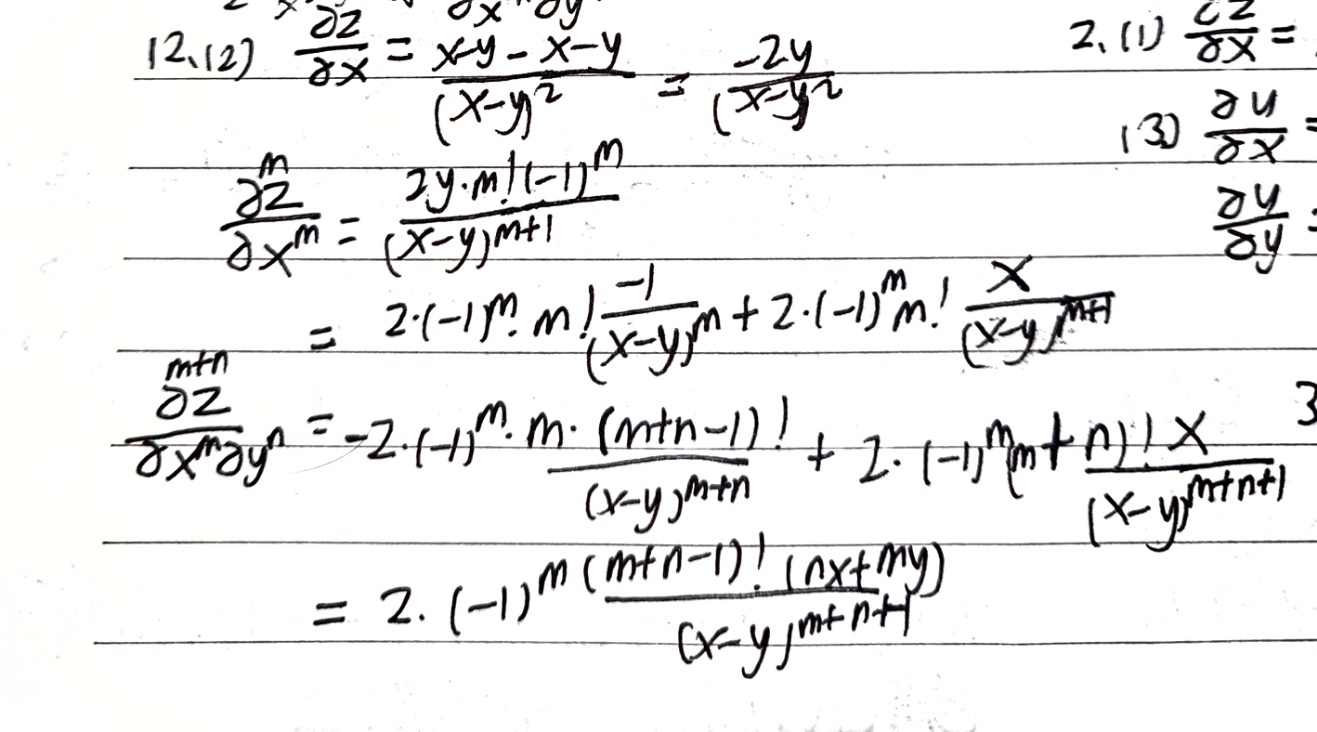 12.(2) ∂z/∂x = (x-y-x-y)/(x-y)^2 = -2y/(x-y)^2
∂^m z/∂x^m = 2y·m!(-1)^m/(x-y)^{m+1}
= 2·(-1)^m·m! -1/(x-y)^m + 2·(-1)^m m! x/(x-y)^{m+1}
∂^{m+n} z/∂x^m∂y^n = -2·(-1)^m·m·(m+n-1)!/(x-y)^{m+n} + 2·(-1)^m(m+n)!x/(x-y)^{m+n+1}
= 2·(-1)^m (m+n-1)!(nx+my)/(x-y)^{m+n+1}
2.(1) ∂z/∂x =
(3) ∂u/∂x =
∂u/∂y =
3